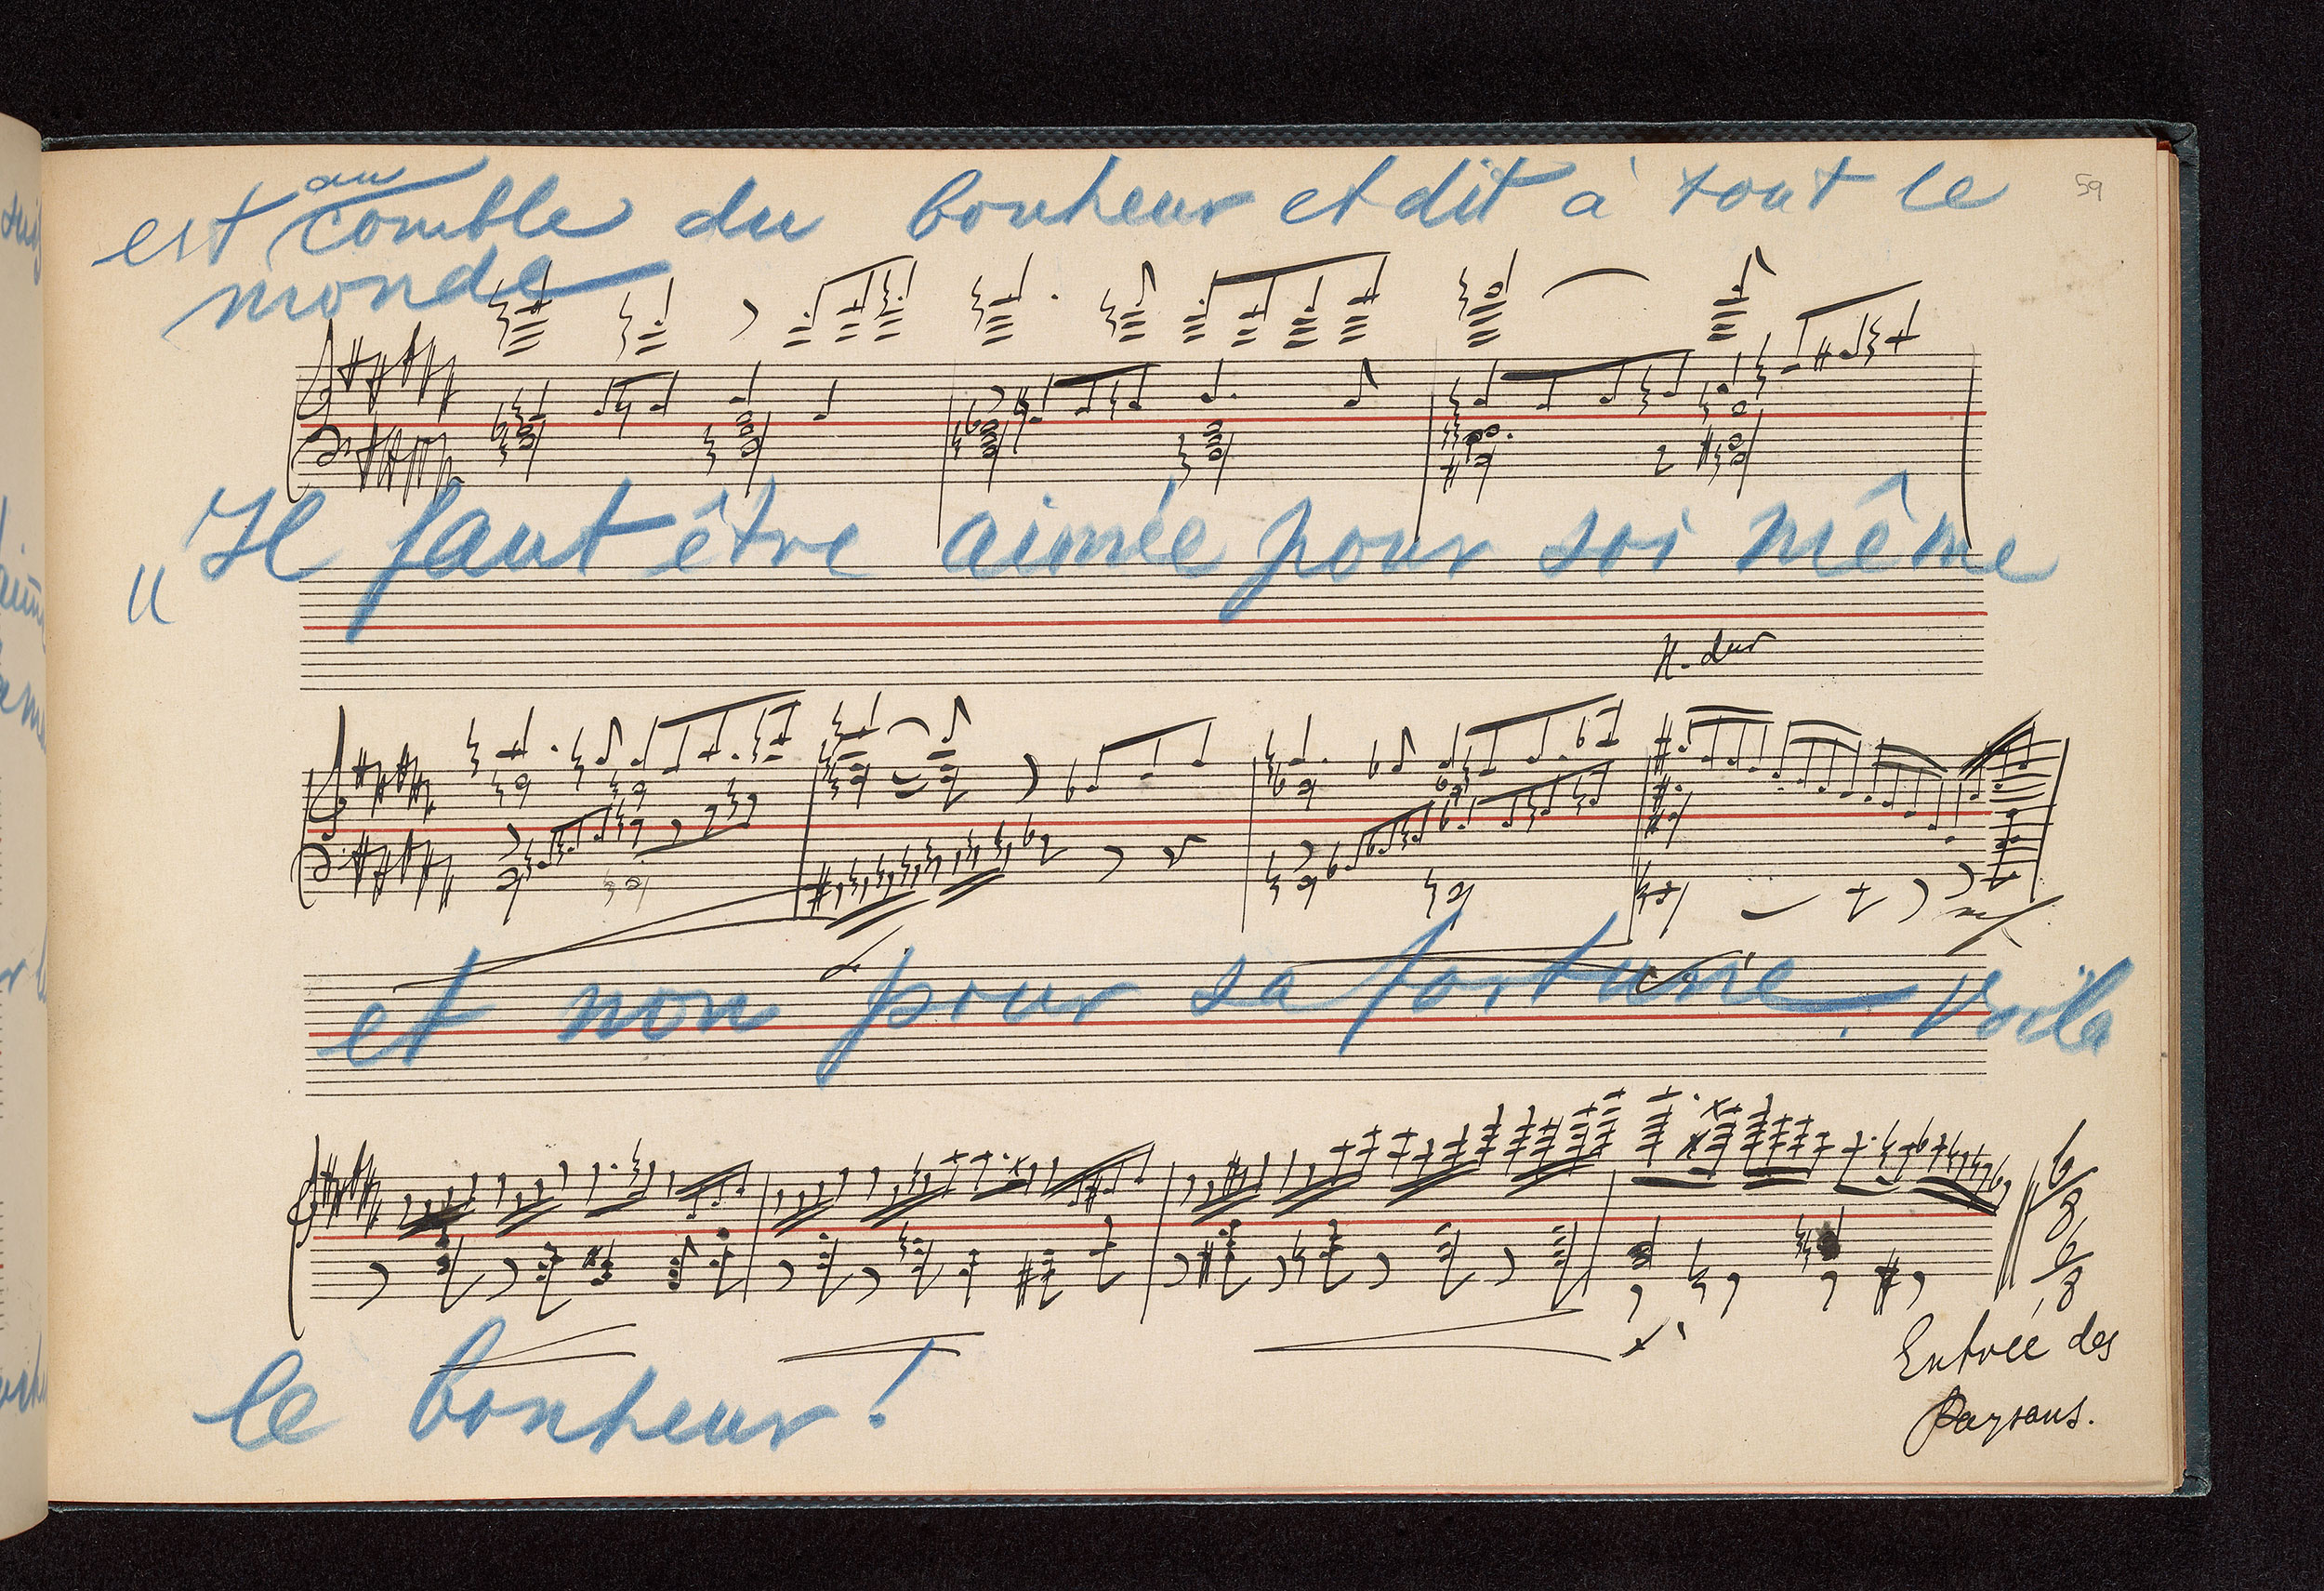 59
est au comble du bonheur et dit à tout le
monde
„ Il faut être aimée pour soi même
H. dur
mf
et non pour sa fortune. Voila
6/8
6/8
le bonheur !
Entrée des
Paysans.